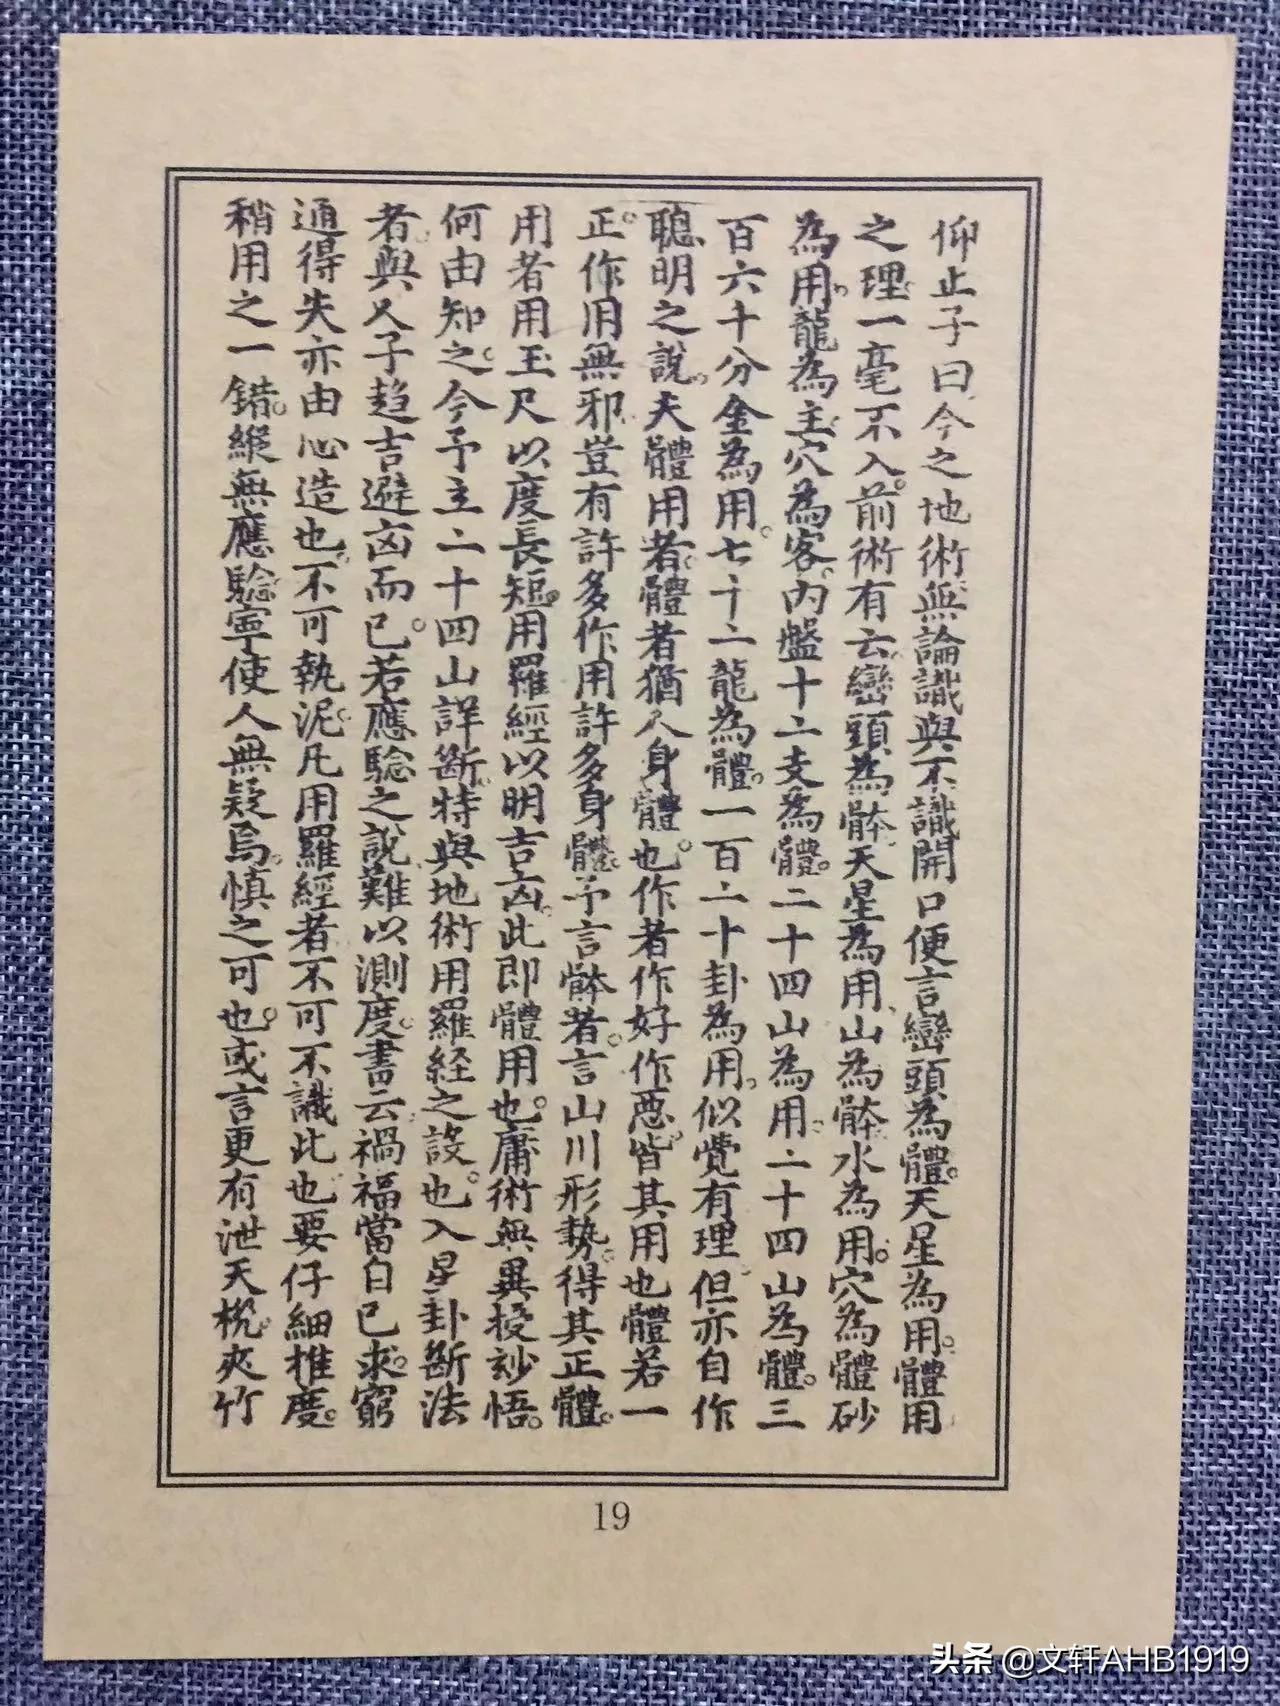 仰止子曰今之地術無論識與不識開口便言巒頭為體。天星為用。體用
之理一毫不入。前術有云。巒頭為骵天星為用、山為骵水為用。穴為體砂
為用。龍為主穴為客。內盤十二支為體。二十四山為用。二十四山為體。三
百六十分金為用。七十二龍為體。一百二十卦為用。似覺有理但亦自作
聰明之說。夫體用者。體者猶人身體也。作者作好作惡。皆其用也體若一
正。作用無邪。豈有許多作用許多身體。予言骵者。言山川形勢。得其正體。
用者用玉尺以度長短。用羅經以明吉凶。此即體用也。庸術無異授妙悟。
何由知之。今予主二十四山詳斷。特與地術用羅経之設。也入星卦斷法
者。與人子趋吉避凶而已。若應驗之說難以測度。書云。禍福當自己求。窮
通得失亦由心造也。不可執泥。凡用羅經者不可不識此也要仔細推度。
稍用之一錯。縱無應驗寧使人無疑焉。慎之可也。或言更有泄天机。夾竹
19
头条 @文轩AHB1919